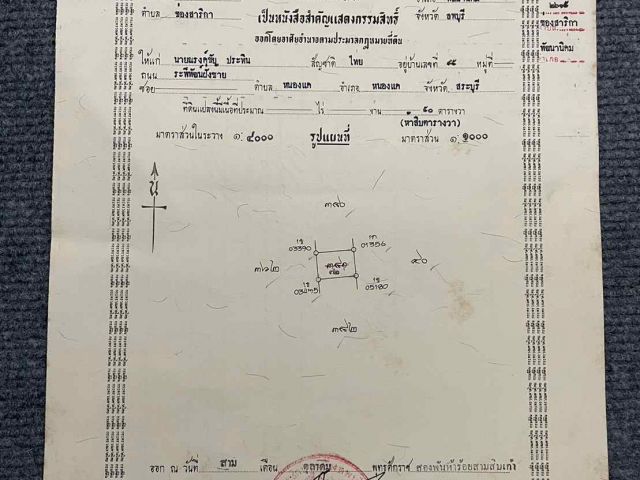 ตำบล ช่องสาริกา จังหวัด ลพบุรี
เป็นหนังสือสำคัญแสดงกรรมสิทธิ์
ออกโดยอาศัยอำนาจตามประมวลกฎหมายที่ดิน
ช่องสาริกา
พัฒนานิคม
ให้แก่ นายณรงค์ชัย ประทีน สัญชาติ ไทย อยู่บ้านเลขที่ ๔๕ หมู่ที่
ถนน ระพีพัฒน์ฝั่งซ้าย
ซอย ตำบล หนองแค อำเภอ หนองแค จังหวัด สระบุรี
ที่ดินแปลงนี้มีเนื้อที่ประมาณ ไร่ งาน ๕๐ ตารางวา
(ห้าสิบตารางวา)
มาตราส่วนในระวาง ๑: ๔๐๐๐ รูปแผนที่ มาตราส่วน ๑: ๑๐๐๐
น
03390
01356
05180
ออก ณ วันที่ สาม เดือน ตุลาคม พุทธศักราช สองพันห้าร้อยสามสิบเก้า